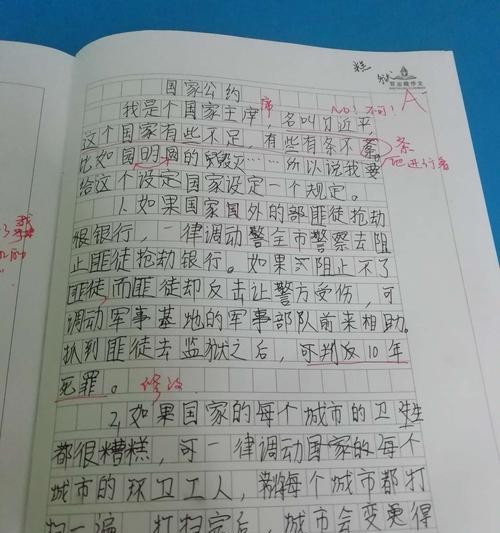 糕 狱
百公隆作文
A
国家公约
席 No! 不可!
我是个国家主席,名叫习近平,
这个国家有些不足,有些有条不紊。 紊
比如园明园的毁灭……所以说我要 他进行着
给这个设定国家设定一个规定。
1、如果国家国外的部匪徒抢劫
银银行,一律调动警全市警察去阻
止匪徒抢劫银行。如果阻止不了
匪徒,而匪徒却反击让警方受伤,可
调动军事基地的军事部队前来相助。
抓到匪徒去监狱之后,可判反10年
死罪。 修改
2、如果国家的每个城市的卫生
都很糟糕,可一律调动国家的每个
城市的环卫工人,每个城市都打
扫一遍,打扫完后,城市会变更得